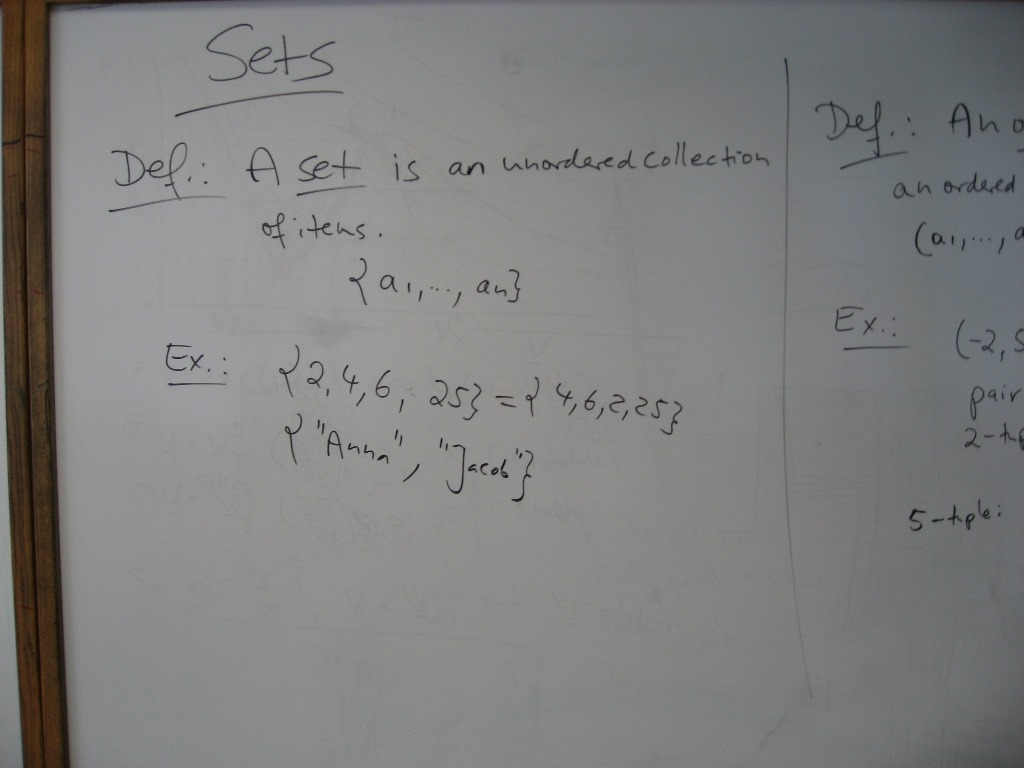 Sets
Def.: A set is an unordered collection
of items.
{a1,..., an}
Ex.: {2,4,6, 25} = {4,6,2,25}
{"Anna", "Jacob"}
Def.: An
an ordered
(a1,...,
Ex.: (-2,
pair
5-tuple: